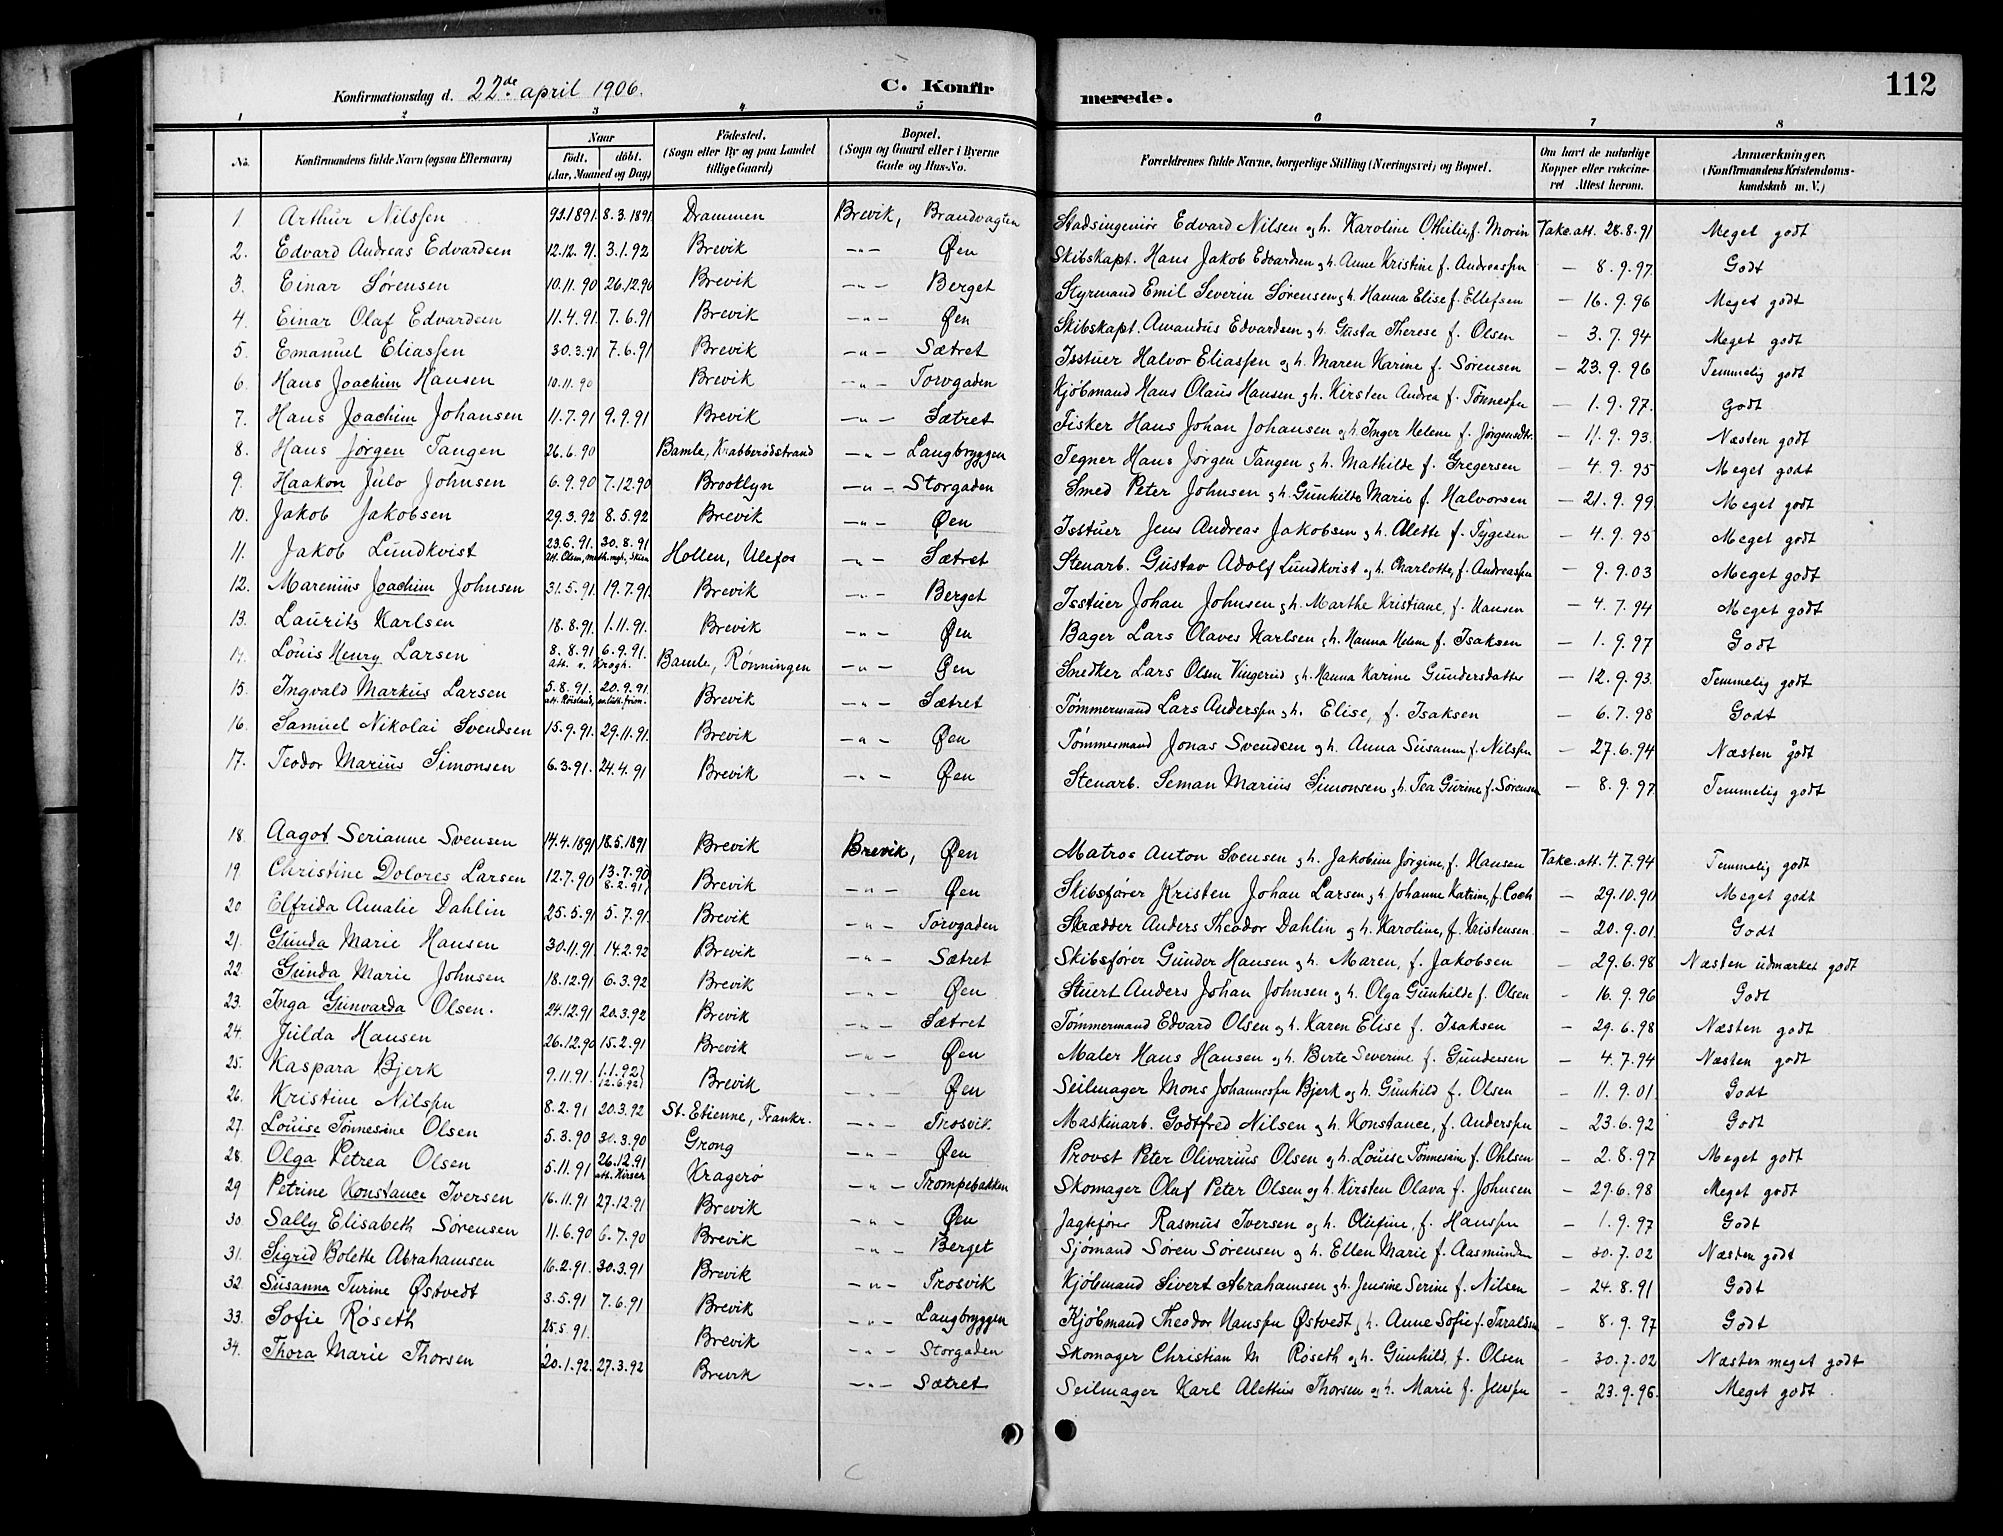 112
Konfirmationsdag d. 22de april 1906. C. Konfirmerede.
1 2 3 4 5 6 7 8
No. Konfirmandens fulde Navn (ogsaa Efternavn) Naar födt. döbt. (Aar, Maaned og Dag) Födested. (Sogn eller By og paa Landet tillige Gaard) Bopæl. (Sogn og Gaard eller i Byerne Gade og Hus-No. Forældrenes fulde Navne, borgerlige Stilling (Næringsvei) og Bopæl. Om havt de naturlige Kopper eller vakcineret Attest herom. Anmærkninger. (Konfirmandens Kristendomskundskab m. V.)
1. Arthur Nilssen 9.1.1891. 8.3.1891 Drammen Brevik, Brandvagten Stadsingeniör Edvard Nilsen og h. Karoline Othilie, f. Morin Vakc. att. 28.8.91 Meget godt
2. Edvard Andreas Edvardsen 12.12.91. 3.1.92 Brevik -"- Øen Skibskapt. Hans Jakob Edvardsen og h. Anne Kristine f. Andreassen - 8.9.97 Godt
3. Einar Sørensen 10.11.90 26.12.90 Brevik -"- Berget Styrmand Emil Severin Sørensen og h. Hanna Elise f. Ellefsen - 16.9.96 Meget godt
4. Einar Olaf Edvardsen 11.4.91. 7.6.91 Brevik -"- Øen Skibskapt. Amandus Edvardsen og h. Gusta Therese f. Olsen - 3.7.94 Meget godt
5. Emanuel Eliassen 30.3.91 7.6.91 Brevik -"- Sætret Isstuer Halvor Eliassen og h. Maren Karine f. Sørensen - 23.9.96 Temmelig godt
6. Hans Joachim Hansen 10.11.90 Brevik -"- Torvgaden Kjøbmand Hans Olaus Hansen og h. Kirsten Andrea f. Tønnessen - 1.9.97. Godt
7. Hans Joachim Johansen 11.7.91 9.9.91 Brevik -"- Sætret Fisker Hans Johan Johansen og h. Inger Helene f. Jørgensdtr. - 11.9.93. Næsten godt
8. Hans Jørgen Tangen 26.6.90 Bamle, Krabberødstrand -"- Langbryggen Tegner Hans Jørgen Tangen og h. Mathilde f. Gregersen - 4.9.95 Meget godt
9. Haakon Julo Johnsen 6.9.90 7.12.90 Brooklyn -"- Storgaden Smed Peter Johnsen og h. Gunhilde Marie f. Halvorsen - 21.9.99 Meget godt
10. Jakob Jakobsen 29.3.92 8.5.92 Brevik -"- Øen Isstuer Jens Andreas Jakobsen og h. Alette f. Tygesen - 4.9.95 Meget godt
11. Jakob Lundkvist 23.6.91. 30.8.91 att. Olsen, meth. mgh. Skien Hollen, Ulefos -"- Sætret Stenarb. Gustav Adolf Lundkvist og h. Charlotte, f. Andreassen - 9.9.03 Meget godt
12. Marenius Joachim Johnsen 31.5.91 19.7.91. Brevik -"- Berget Isstuer Johan Johnsen og h. Marthe Kristiane, f. Hansen - 4.7.94 Meget godt
13. Lauritz Karlsen 18.8.91. 1.11.91. Brevik -"- Øen Bager Lars Olaves Karlsen og h. Hanna Helene f. Isaksen - 1.9.97 Godt
14. Louis Henry Larsen 8.8.91 6.9.91. att. v. Krogh. Bamle, Rønningen -"- Øen Snedker Lars Olsen Vingerud og h. Hanna Karine Gundersdatter - 12.9.93. Temmelig godt
15. Ingvald Markus Larsen 5.8.91. 20.9.91. att. Röisland, ev. luth. frim. Brevik -"- Sætret Tømmermand Lars Anderssen og h. Elise, f. Isaksen - 6.7.98 Godt
16. Samuel Nikolai Svendsen 15.9.91. 29.11.91. Brevik -"- Øen Tømmermand Jonas Svendsen og h. Anna Susanne f. Nilssen - 27.6.94 Næsten godt
17. Teodor Marius Simonsen 6.3.91. 24.4.91 Brevik -"- Øen Stenarb. Seman Marius Simonsen og h. Tea Gurine f. Sørensen - 8.9.97. Temmelig godt
18. Aagot Serianne Svensen 14.4.1891 18.5.1891 Brevik Brevik, Øen Matros Anton Svensen og h. Jakobine Jørgine, f. Hansen Vakc. att. 4.7.94 Temmelig godt
19. Christine Dolores Larsen 12.7.90 13.7.90 8.2.91) Brevik -"- Øen Skibsfører Kristen Johan Larsen og h. Johanne Katrine, f. Coch - 29.10.91 Meget godt
20. Elfrida Amalie Dahlin 25.5.91 5.7.91. Brevik -"- Torvgaden Skrædder Anders Theodor Dahlin og h. Karoline, f. Kristensen. - 20.9.01. Godt
21. Gunda Marie Hansen 30.11.91 14.2.92 Brevik -"- Sætret Skibsfører Gunder Hansen og h. Maren, f. Jakobsen - 29.6.98 Næsten udmærket godt
22. Gunda Marie Johnsen 18.12.91 6.3.92 Brevik -"- Øen Stuert Anders Johan Johnsen og h. Olga Gunhilde f. Olsen - 16.9.96 Godt
23. Inga Gunvarda Olsen. 24.12.91 20.3.92 Brevik -"- Sætret Tømmermand Edvard Olsen og h. Karen Elise f. Isaksen - 29.6.98 Næsten godt
24. Julda Hansen 26.12.90 15.2.91 Brevik -"- Øen Maler Hans Hansen og h. Berte Severine f. Gundersen - 4.7.94 Næsten godt
25. Kaspara Bjerk 9.11.91. 1.1.92) 12.6.92) Brevik -"- Øen Seilmager Mons Johannessen Bjerk og h. Gunhild f. Olsen - 11.9.01. Godt
26. Kristine Nilssen 8.2.91 20.3.92 St. Etienne, Frankr. -"- Trosvik Maskinarb. Godtfred Nilsen og h. Konstance, f. Anderssen - 23.6.92 Godt
27. Louise Tønnesine Olsen 5.3.90 30.3.90 Grong -"- Øen Provst Peter Olivarius Olsen og h. Louise Tønnesine f. Ohlsen - 2.8.97 Meget godt
28. Olga Petrea Olsen 5.11.91 26.12.91 att. Kirsch Kragerø -"- Trompebakken Skomager Oluf Peter Olsen og h. Kirsten Olava f. Johnsen - 29.6.98 Meget godt
29 Petrine Konstance Iversen 16.11.91 27.12.91 Brevik -"- Øen Jagtefører Rasmus Iversen og h. Olefine, f. Hanssen - 1.9.97 Godt
30. Sally Elisabeth Sørensen 11.6.90 6.7.90 Brevik -"- Berget Sjömand Søren Sørensen og h. Ellen Marie f. Aasmundsen - 30.7.02 Næsten godt
31. Sigrid Bolette Abrahamsen 16.2.91 30.3.91 Brevik -"- Trosvik Kjøbmand Sivert Abrahamsen og h. Jensine Serine f. Nilsen - 24.8.91 Godt
32. Susanna Turine Østvedt 3.5.91 7.6.91 Brevik -"- Langbryggen Kjøbmand Theodor Hanssen Østvedt og h. Anne Sofie f. Taraldsen - 8.9.97 Godt
33. Sofie Røseth 25.5.91. Brevik -"- Storgaden Skomager Christian M Røseth og h. Gunhild, f. Olsen - 30.7.02 Næsten meget godt
34. Thora Marie Thorsen 20.1.92. 27.3.92 Brevik -"- Sætret Seilmager Karl Alettius Thorsen og h. Marie f. Jenssen - 23.9.96. Meget godt